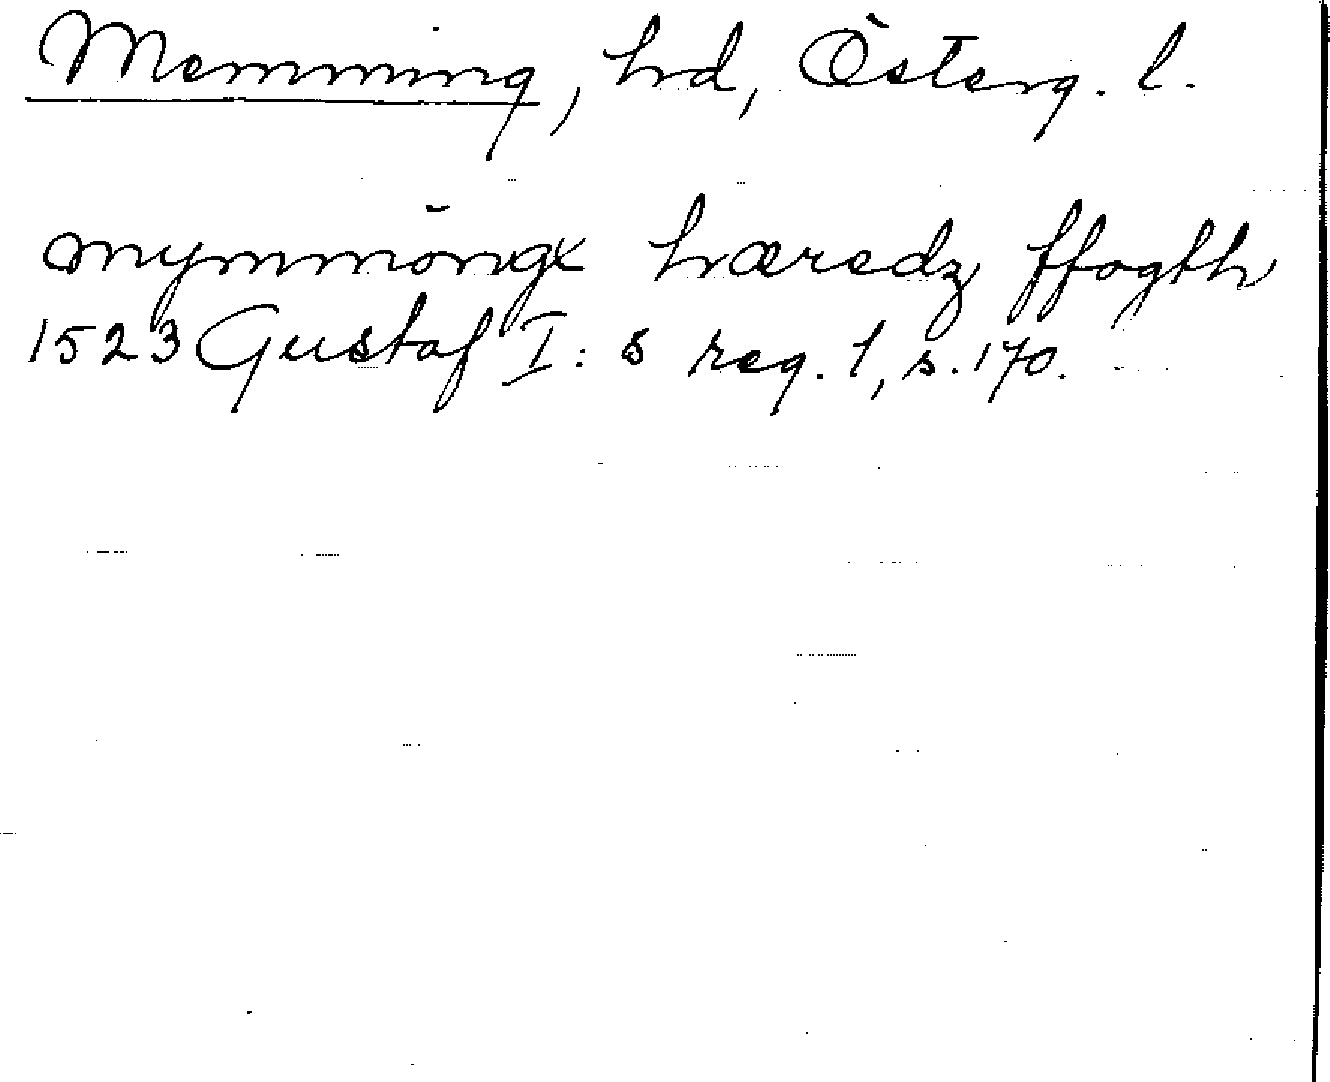 Memming, hd, Österg. l.
mymmöngx hæredz ffogth
1523 Gustaf I:s reg. 1, s. 170.